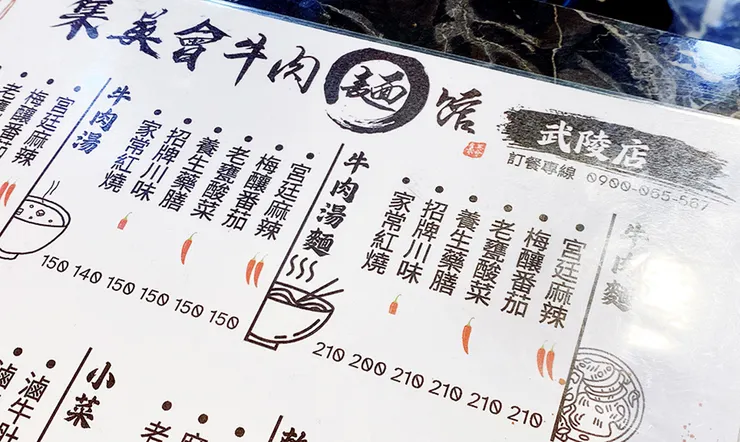 集英會牛肉麵館
武陵店
訂餐專線 0900-065-567
牛肉麵
宮廷麻辣
梅釀番茄
老甕酸菜
養生藥膳
招牌川味
家常紅燒
210 200 210 210 210 210
牛肉湯麵
宮廷麻辣
梅釀番茄
老甕酸菜
養生藥膳
招牌川味
家常紅燒
150 140 150 150 150 150
牛肉湯
宮廷麻辣
梅釀番茄
小菜
滷牛肚